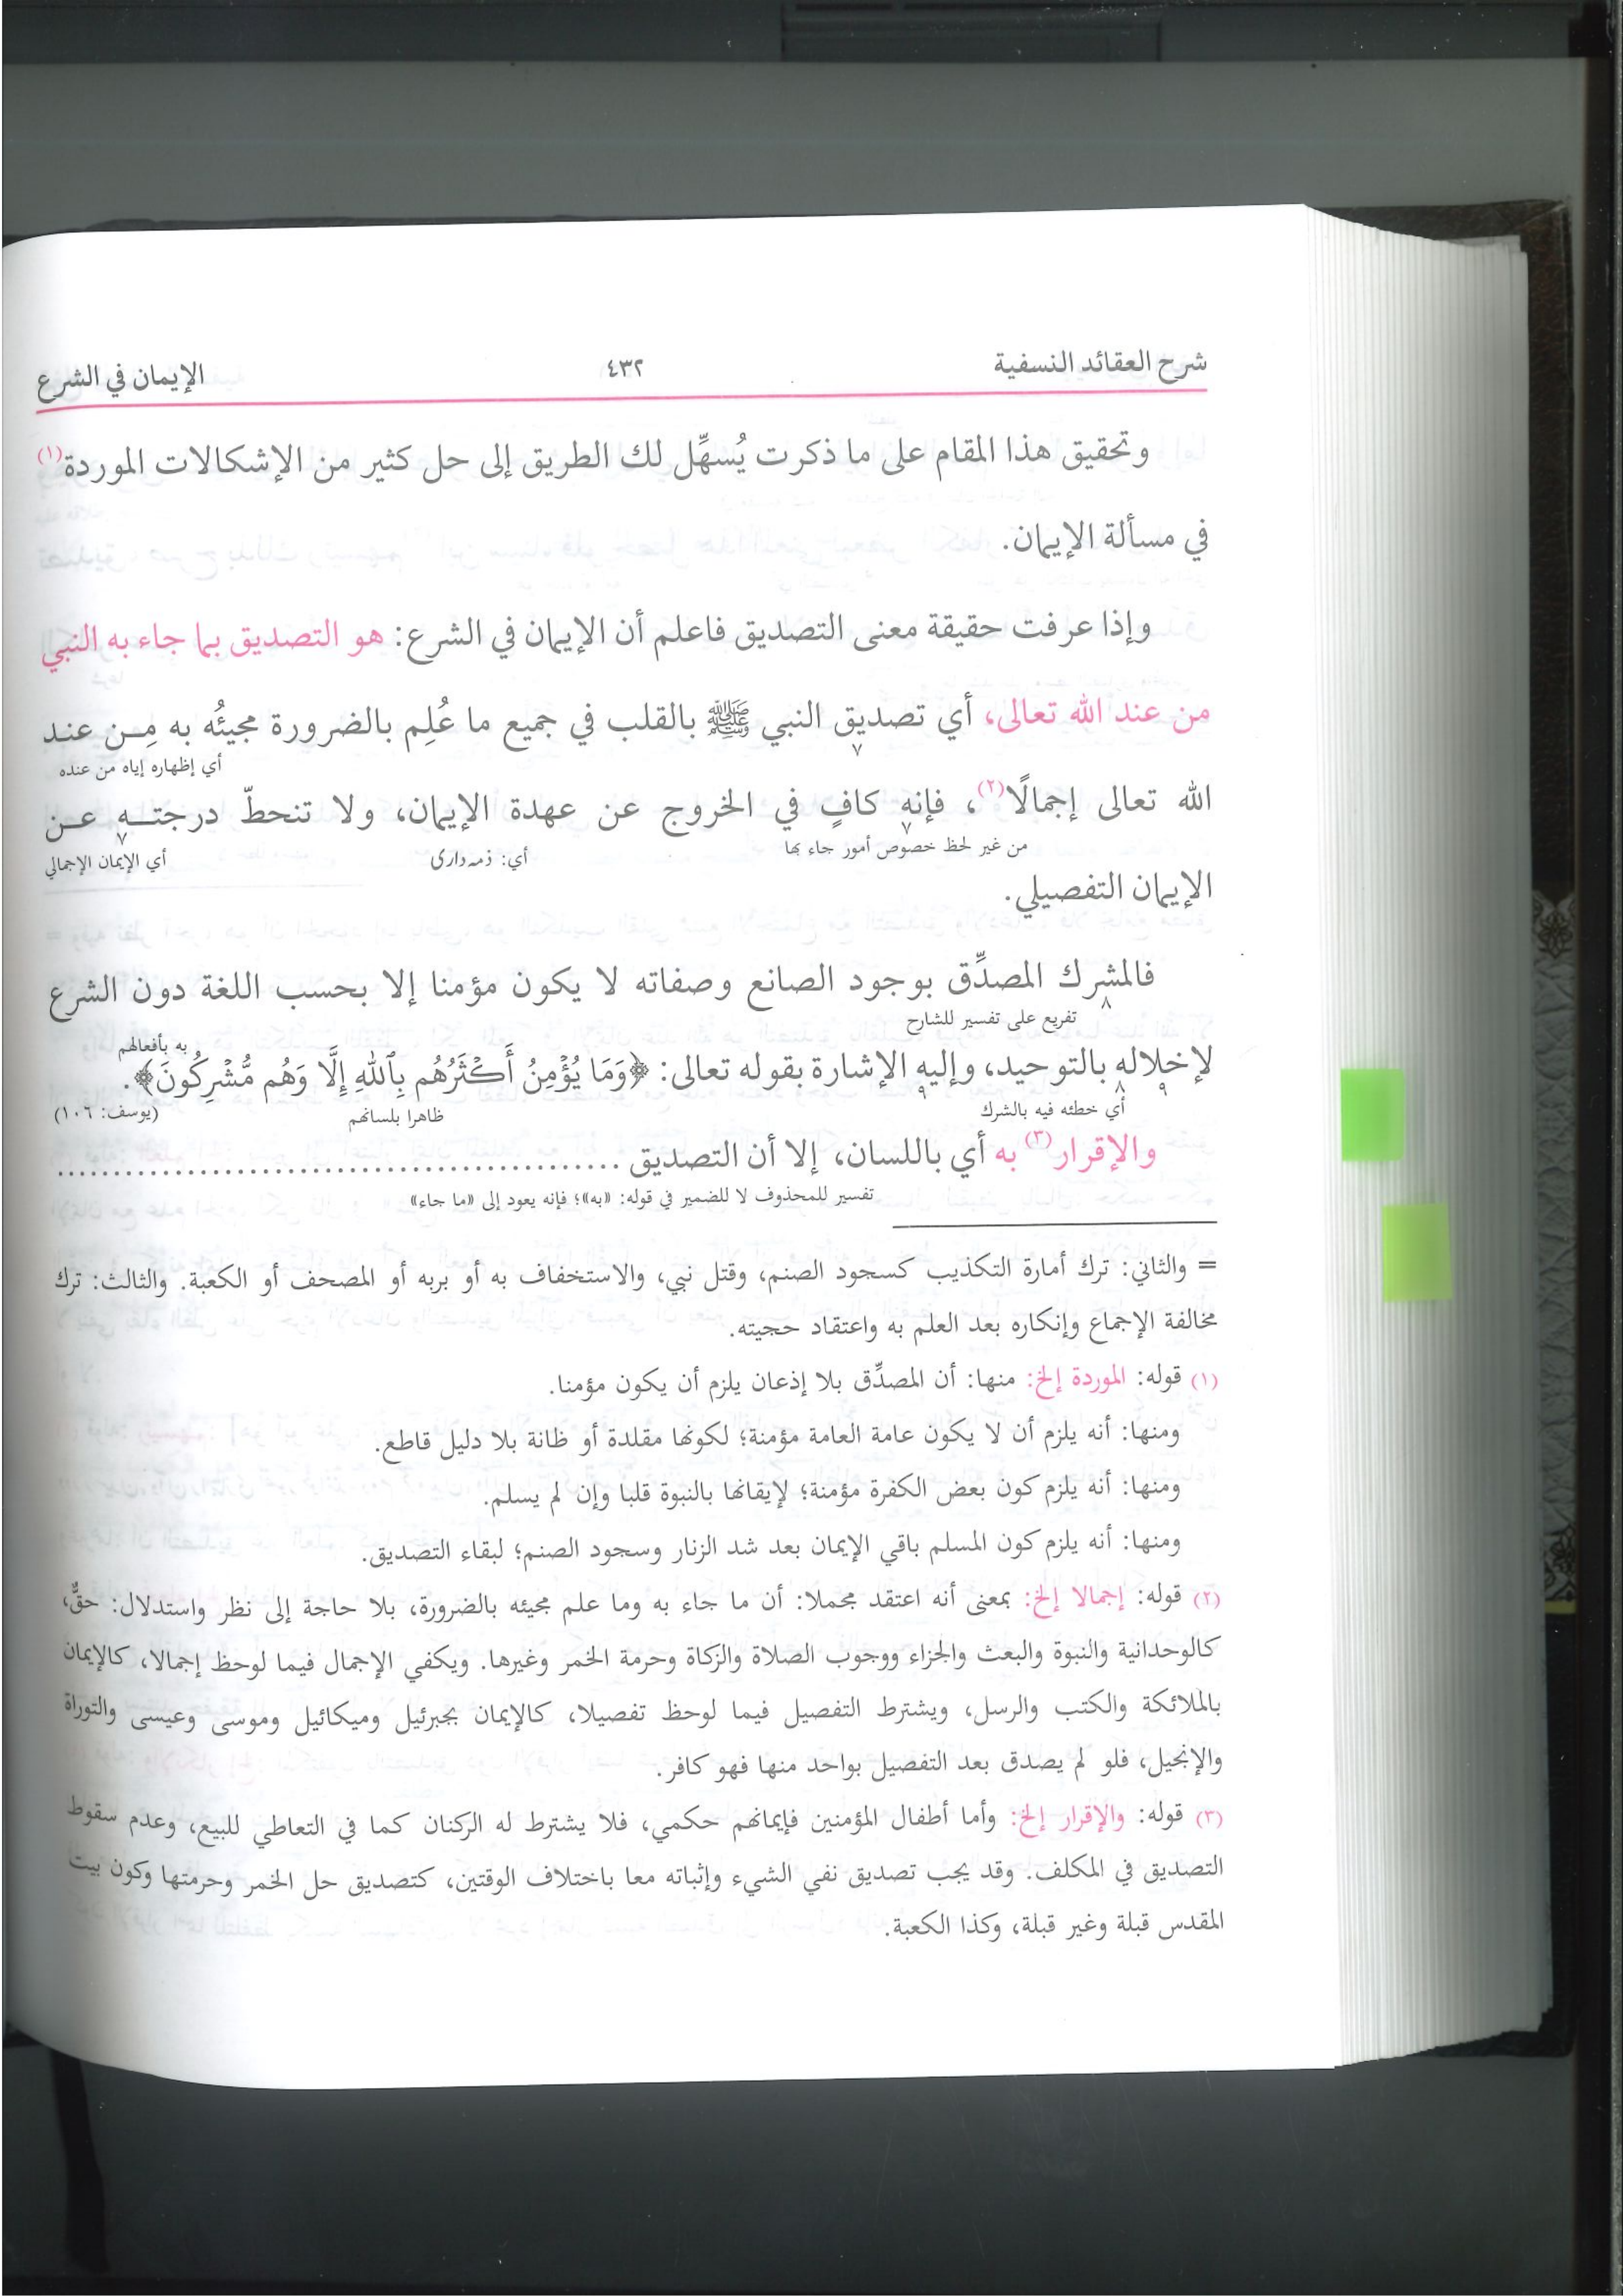 شرح العقائد النسفية ٤٣٢ الإيمان في الشرع
وتحقيق هذا المقام على ما ذكرت يُسهِّل لك الطريق إلى حل كثير من الإشكالات الموردة(١)
في مسألة الإيمان.
وإذا عرفت حقيقة معنى التصديق فاعلم أن الإيمان في الشرع: هو التصديق بما جاء به النبي
من عند الله تعالى، أي تصديق النبي ﷺ بالقلب في جميع ما عُلِم بالضرورة مجيئُه به مِن عند
٧ أي إظهاره إياه من عنده
الله تعالى إجمالًا(٢)، فإنه كافٍ في الخروج عن عهدة الإيمان، ولا تنحطّ درجته عن
٧ من غير لحظ خصوص أمور جاء بها أي: ذمہ داری ٧ أي الإيمان الإجمالي
الإيمان التفصيلي.
فالمشرك المصدِّق بوجود الصانع وصفاته لا يكون مؤمنا إلا بحسب اللغة دون الشرع
٨ تفريع على تفسير للشارح
به بأفعالهم
لإخلاله بالتوحيد، وإليه الإشارة بقوله تعالى: ﴿وَمَا يُؤْمِنُ أَكْثَرُهُم بِٱللَّهِ إِلَّا وَهُم مُّشْرِكُونَ﴾.
٩ ٨ أي خطئه فيه بالشرك ٩ ظاهرا بلسانهم (يوسف: ١٠٦)
والإقرار(٣) به أي باللسان، إلا أن التصديق ..............................................
تفسير للمحذوف لا للضمير في قوله: «به»؛ فإنه يعود إلى «ما جاء»
= والثاني: ترك أمارة التكذيب كسجود الصنم، وقتل نبي، والاستخفاف به أو بربه أو المصحف أو الكعبة. والثالث: ترك
مخالفة الإجماع وإنكاره بعد العلم به واعتقاد حجيته.
(١) قوله: الموردة إلخ: منها: أن المصدِّق بلا إذعان يلزم أن يكون مؤمنا.
ومنها: أنه يلزم أن لا يكون عامة العامة مؤمنة؛ لكونها مقلدة أو ظانة بلا دليل قاطع.
ومنها: أنه يلزم كون بعض الكفرة مؤمنة؛ لإيقانها بالنبوة قلبا وإن لم يسلم.
ومنها: أنه يلزم كون المسلم باقي الإيمان بعد شد الزنار وسجود الصنم؛ لبقاء التصديق.
(٢) قوله: إجمالا إلخ: بمعنى أنه اعتقد مجملا: أن ما جاء به وما علم مجيئه بالضرورة، بلا حاجة إلى نظر واستدلال: حقٌّ،
كالوحدانية والنبوة والبعث والجزاء ووجوب الصلاة والزكاة وحرمة الخمر وغيرها. ويكفي الإجمال فيما لوحظ إجمالا، كالإيمان
بالملائكة والكتب والرسل، ويشترط التفصيل فيما لوحظ تفصيلا، كالإيمان بجبرئيل وميكائيل وموسى وعيسى والتوراة
والإنجيل، فلو لم يصدق بعد التفصيل بواحد منها فهو كافر.
(٣) قوله: والإقرار إلخ: وأما أطفال المؤمنين فإيمانهم حكمي، فلا يشترط له الركنان كما في التعاطي للبيع، وعدم سقوط
التصديق في المكلف. وقد يجب تصديق نفي الشيء وإثباته معا باختلاف الوقتين، كتصديق حل الخمر وحرمتها وكون بيت
المقدس قبلة وغير قبلة، وكذا الكعبة.